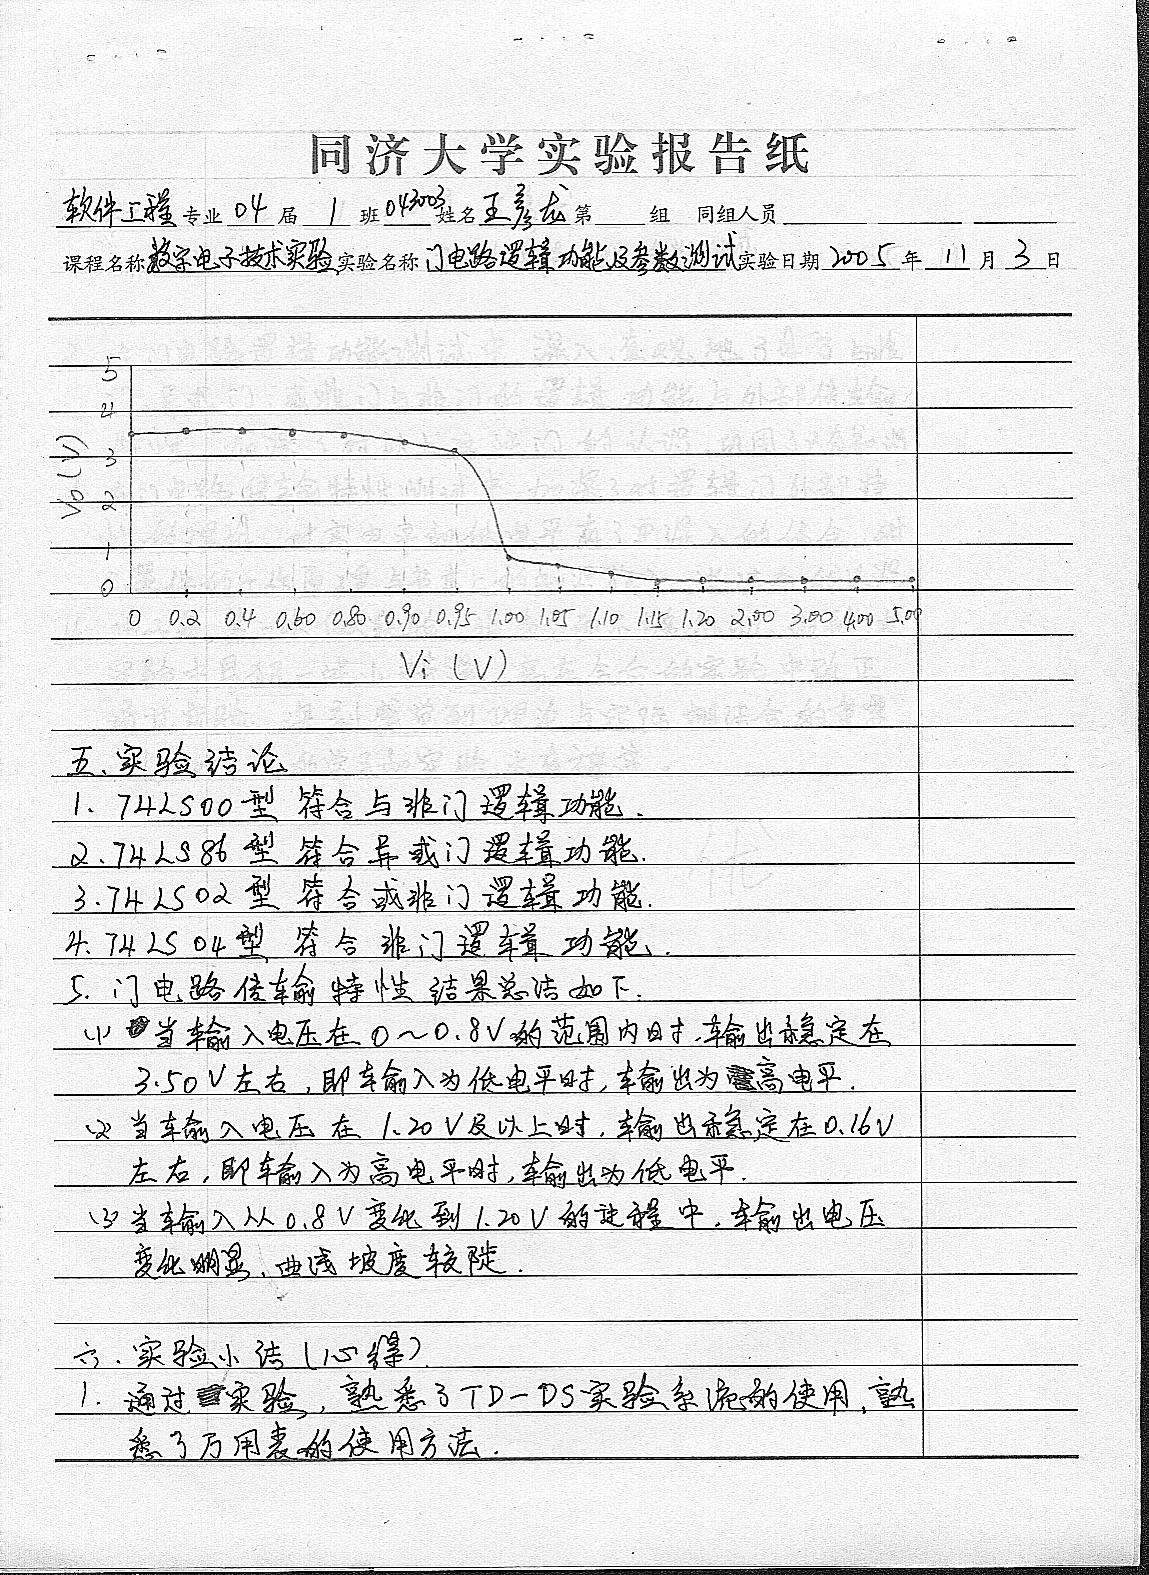 同济大学实验报告纸
软件工程 专业 04 届 1 班 043003 姓名 王彦龙 第 组 同组人员
课程名称 数字电子技术实验 实验名称 门电路逻辑功能及参数测试 实验日期 2005 年 11 月 3 日
5
4
3
2
1
0
Vo (V)
0 0.2 0.4 0.60 0.80 0.90 0.95 1.00 1.05 1.10 1.15 1.20 2.00 3.00 4.00 5.00
Vi (V)
五、实验结论
1. 74LS00型 符合与非门逻辑功能.
2. 74LS86型 符合异或门逻辑功能.
3. 74LS02型 符合或非门逻辑功能.
4. 74LS04型 符合非门逻辑功能.
5. 门电路传输特性结果总结如下.
(1) 当输入电压在0~0.8V的范围内时,输出稳定在
3.50V左右,即输入为低电平时,输出为高电平.
(2) 当输入电压在1.20V及以上时,输出稳定在0.16V
左右,即输入为高电平时,输出为低电平.
(3) 当输入从0.8V变化到1.20V的过程中,输出电压
变化明显、曲线坡度较陡.
六、实验小结(心得)
1. 通过实验,熟悉了TD-DS实验系统的使用,熟
悉了万用表的使用方法.